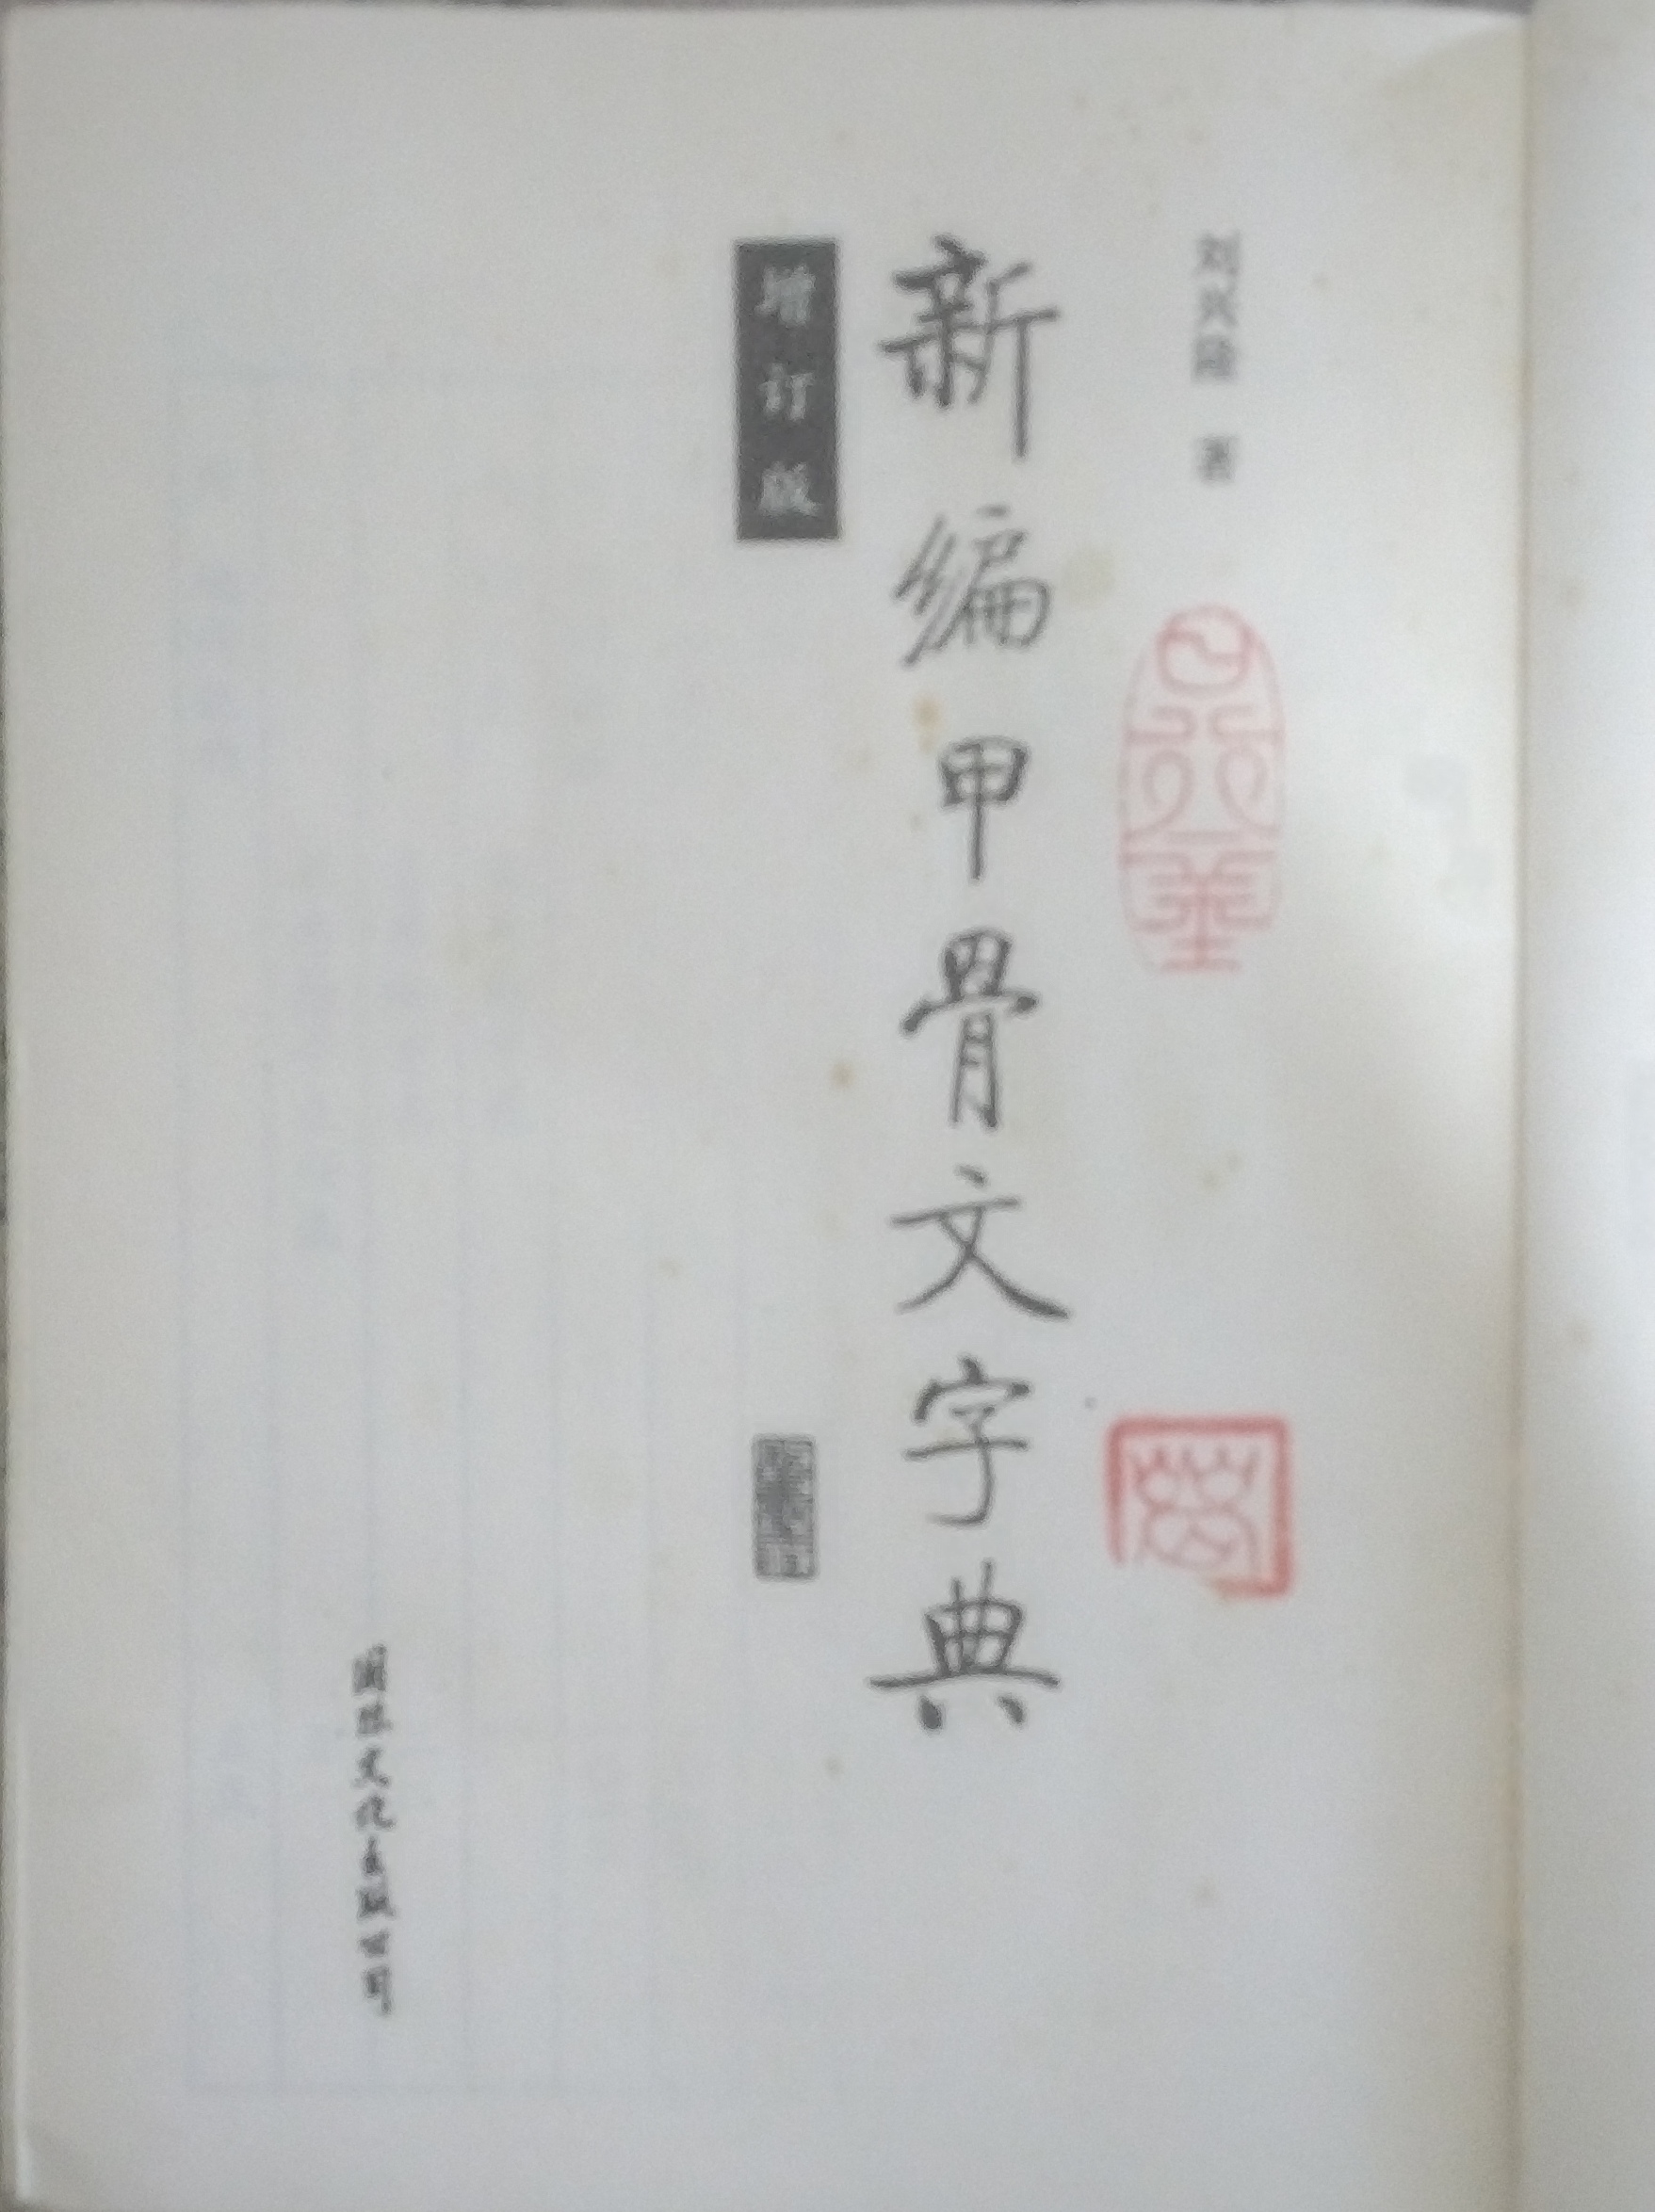 刘兴隆 著
新编甲骨文字典
增订版
国际文化出版公司